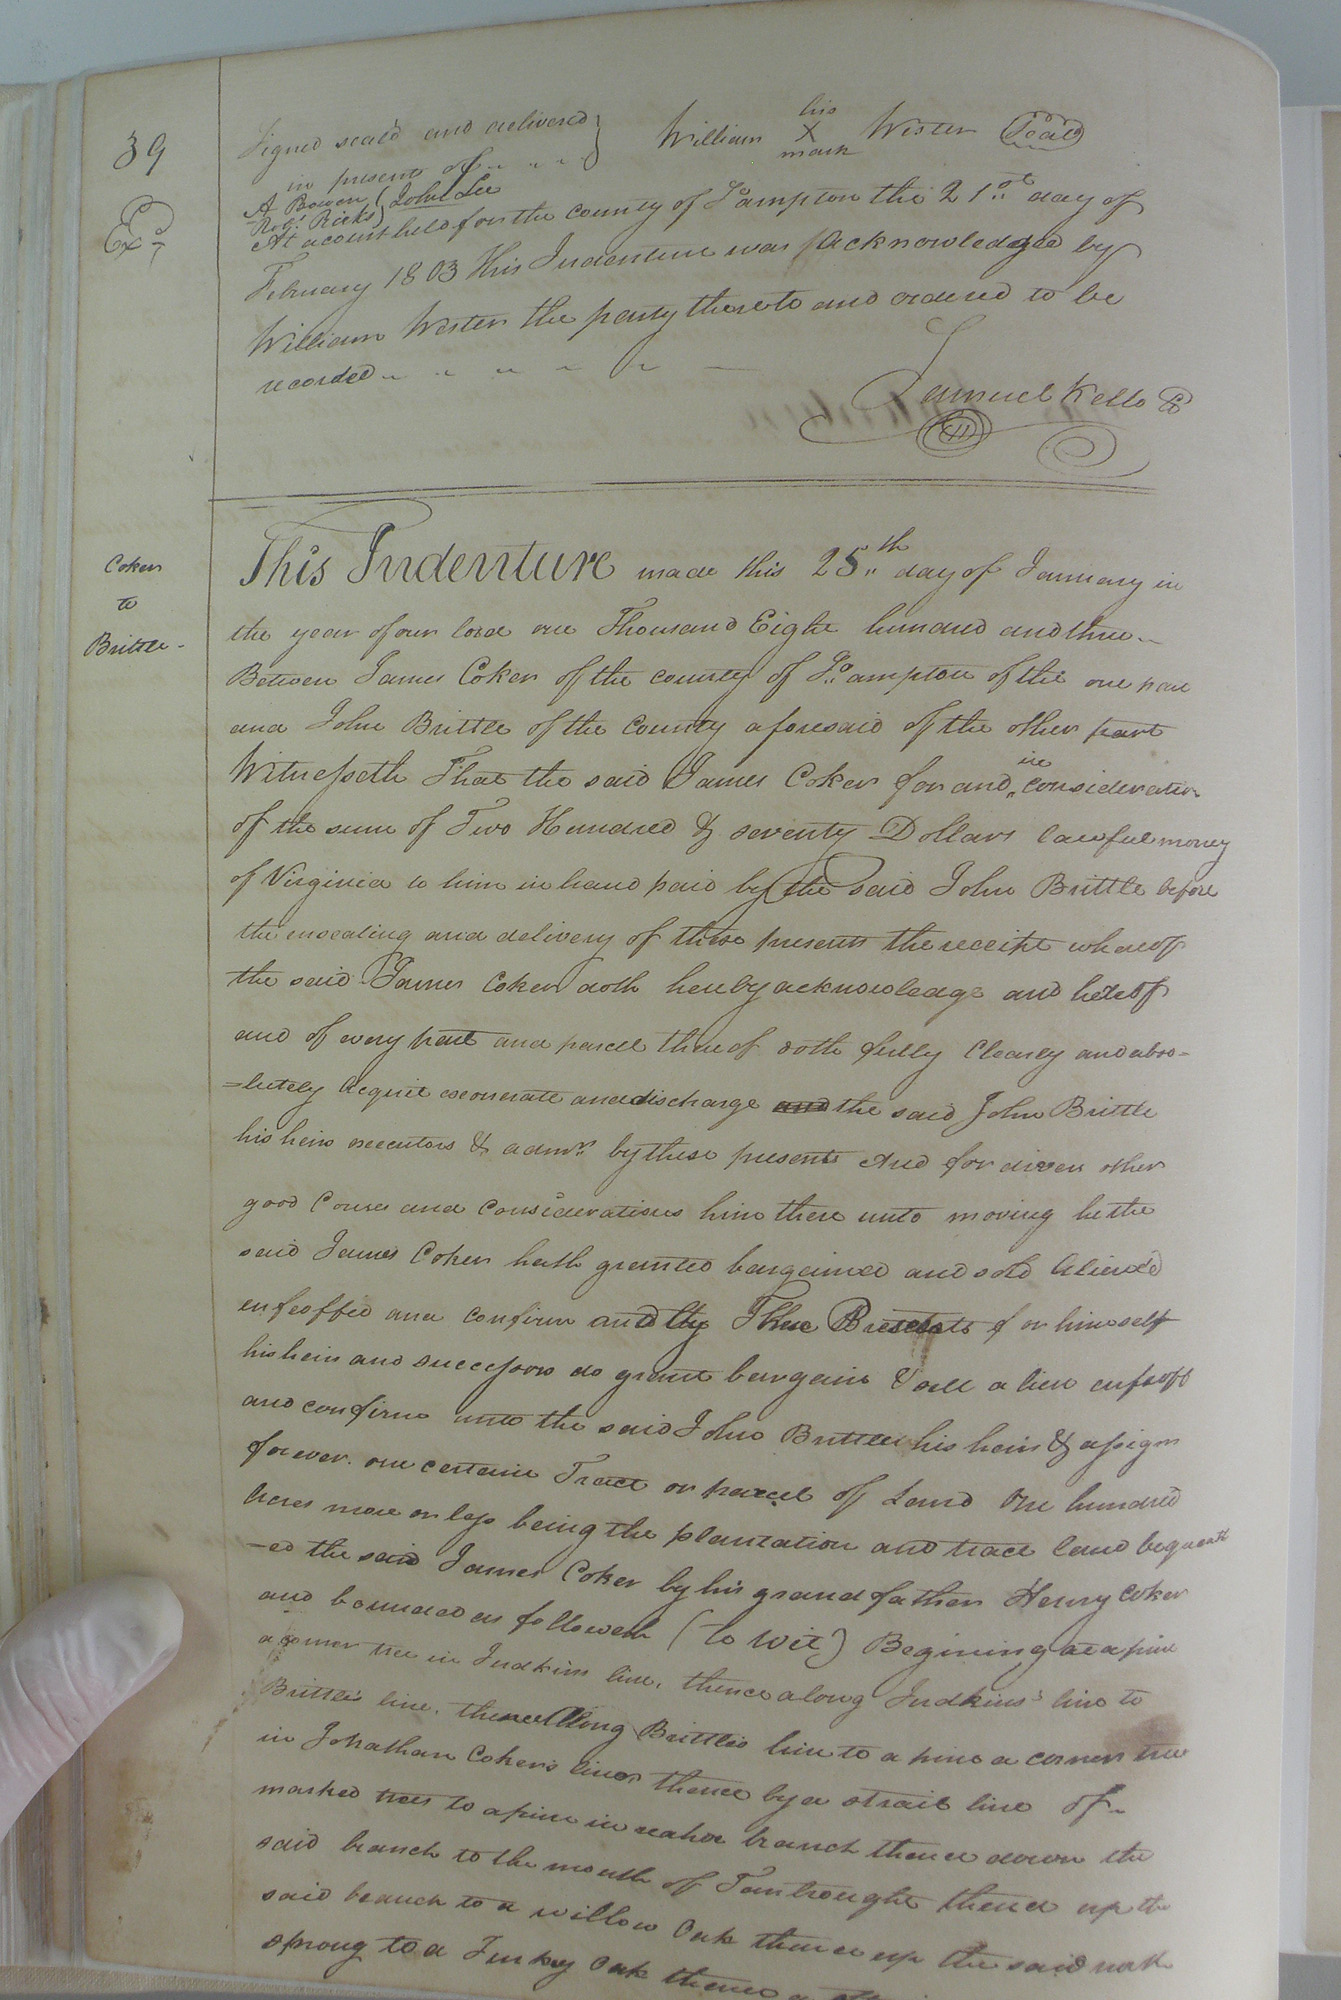 39
Signed seald and delivered } William his X mark Wester Seal
in presents of
A Bowen ( John Lee
Robt Ricks )
Exd
At a court held for the county of So.ampton the 21st day of
February 1803 this Indenture was Acknowledged by
William Wester the party thereto and ordered to be
recorded
Samuel Kello C
Coker
to
Brittle
This Indenture made this 25th day of January in
the year of our lord one Thousand Eight hundred and three
Between James Coker of the county of So.ampton of the one part
and John Brittle of the County aforesaid of the other part
Witnesseth That the said James Coker for and in consideration
of the sum of Two Hundred & seventy Dollars lawful money
of Virginia to him in hand paid by the said John Brittle before
the ensealing and delivery of these presents the receipt whereof
the said James Coker doth hereby acknowledge and hereof
and of every part and parcel thereof doth fully Clearly and abso-
=lutely Acquit exonerate and discharge and the said John Brittle
his heirs executors & admrs by these presents And for divers other
good Couses and Considerations him there unto moving he the
said James Coker hath granted bargained and sold Aliend
enfeoffed and confirm and by These Presents for himself
his heirs and successors do grant bargain & sell alien enfeoff
and confirm unto the said John Brittle his heirs & assigns
forever. one certain Tract or parcel of Land One hundred
Acres more or less being the plantation and tract land bequeath
-ed the said James Coker by his grandfather Henry Coker
and bounded as followeth (to wit) Begining at a pine
a corner tree in Judkins line, thence along Judkins's line to
Brittle's line, thence along Brittles line to a pine a corner tree
in Jonathan Coker's line thence by a strait line of
marked trees to a pine in branch thence down the
said branch to the mouth of thence up the
said branch to a willow Oak thence up the said
sprong to a Turkey Oak thence